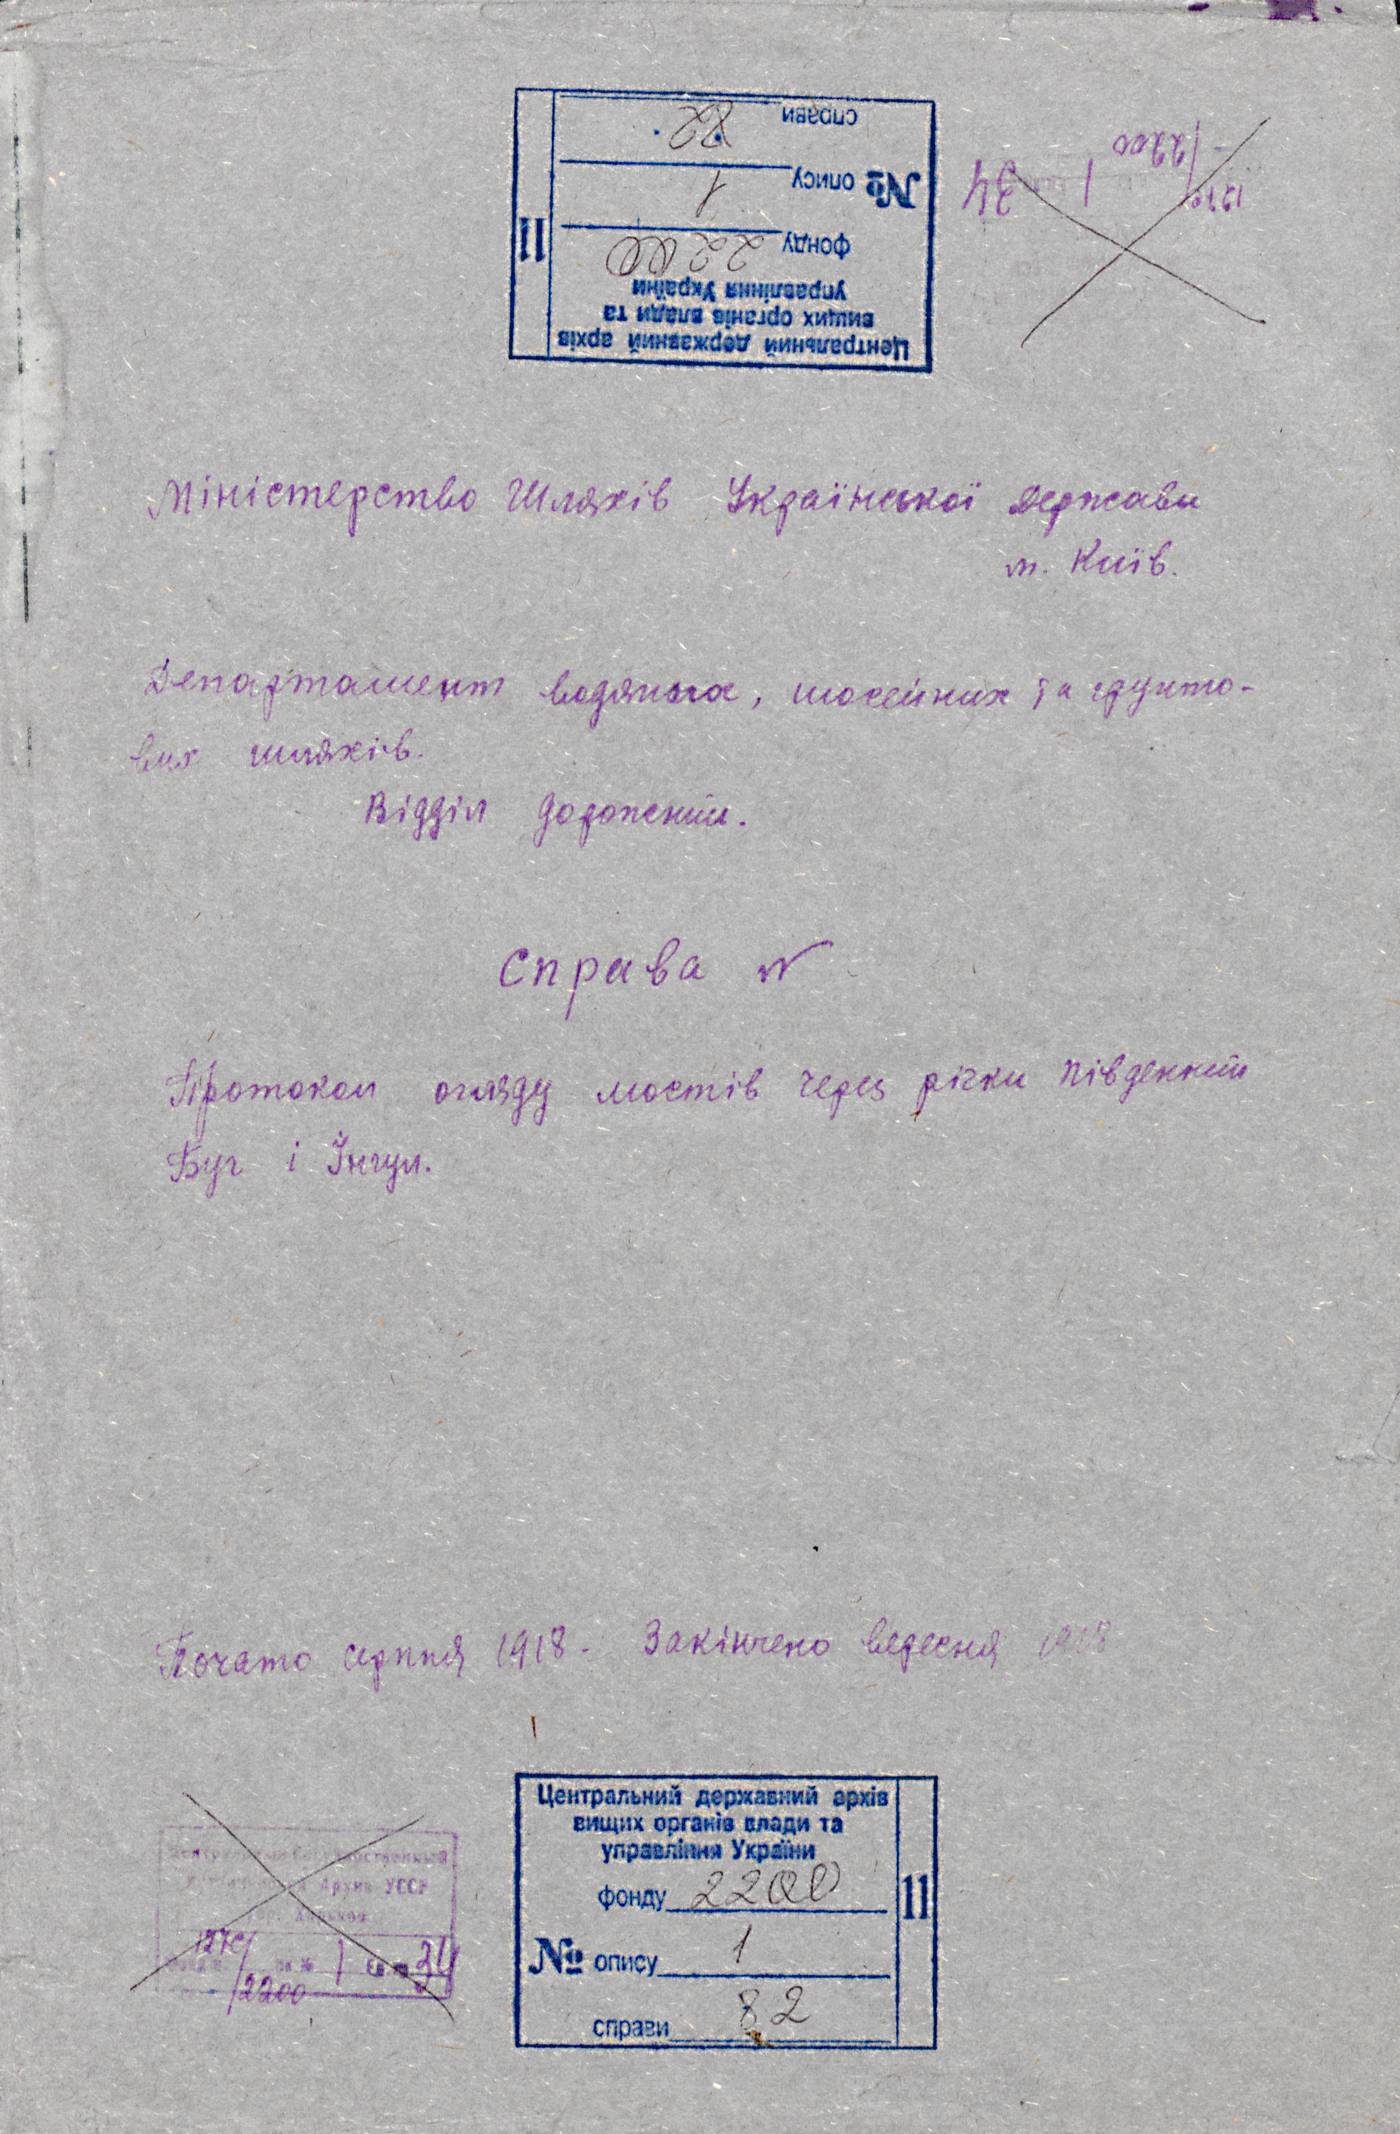 Центральний державний архів
вищих органів влади та
управління України
фонду 2200
№ опису 1
справи 82
11
2200
1 34
Міністерство Шляхів Української Держави
м. Київ.
Департамент водяних, шосейних та ґрунто-
вих шляхів.
Відділ дорожний.
Справа №
Протокол огляду мостів через річки Південний
Буг і Інгул.
Почато серпня 1918 - Закінчено вересня 1918
Центральний державний архів
вищих органів влади та
управління України
фонду 2200
№ опису 1
справи 82
11
Архив УССР
г. Харьков
2200
1
34